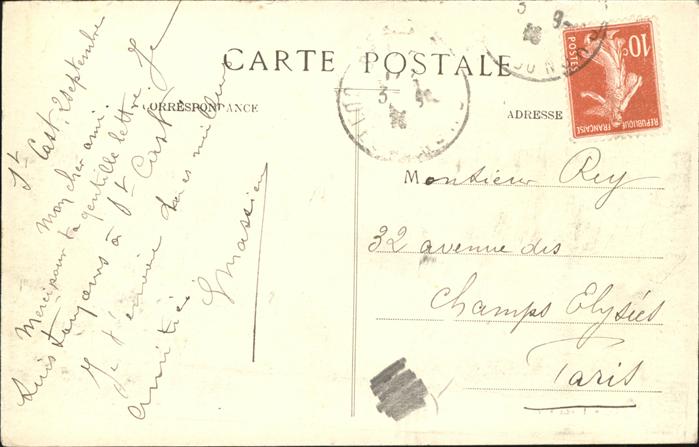 CARTE POSTALE
CORRESPONDANCE
ADRESSE
10c
POSTES
REPUBLIQUE FRANÇAISE
St Cast, 2 septembre
Mon cher ami.
Merci pour ta gentille lettre. Je
suis toujours à St Cast.
Je t'envoie mes meilleures
amitiés
G Massieu
Monsieur Rey
32 avenue des
Champs Elysées
Paris